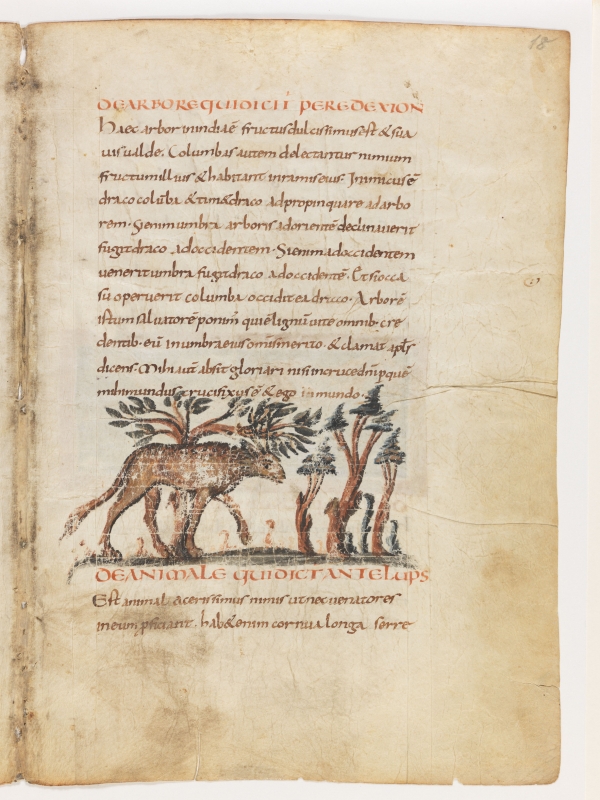 18
DE ARBORE QUI DICIT PEREDEXION
Haec arbor inindiaē fructusdulcissimusest & sua
uisualde. Columbas autem delectantur nimium
fructumillius & habitant inramiseius. Inimicusē
draco colūba & tim& draco adpropinquare adarbo
rem. Sienimumbra arboris adorientē declinauerit
fugit draco adoccidentem. Sienim adoccidentem
uenerit umbra fugit draco adoccidentē. Et si occa
su operuerit columba occidit ea draco. Arborē
istum saluatorē ponim quiē lignū uite omnib. cre
dentib. eū inumbra eius omīs inerito. & clamat apls
dicens. Mihi aūt absit gloriari nisi incruce dnī p quē
mihi mundus crucifixus ē & ego in mundo.
DE ANIMALE QUI DICT ANTELUPS
Est animal acerissimus nimis ut nec uenatores
ineum psiciant. hab& enim cornua longa serre